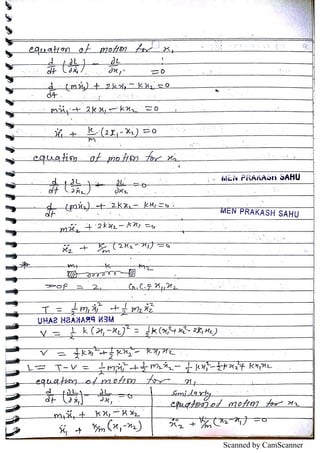 equation of motion for x₁
d/dt (∂L/∂ẋ₁) - ∂L/∂x₁ = 0
d/dt (mẋ₁) + 2kx₁ - kx₂ = 0
mẍ₁ + 2kx₁ - kx₂ = 0
ẍ₁ + k/m (2x₁-x₂) = 0
equation of motion for x₂
d/dt (∂L/∂ẋ₂) - ∂L/∂x₂ = 0
MEN PRAKASH SAHU
d/dt (mẋ₂) + 2kx₂ - kx₁ = 0
MEN PRAKASH SAHU
mẍ₂ + 2kx₂ - kx₁ = 0
ẍ₂ + k/m (2x₂-x₁) = 0
m₁ k m₂
DOF = 2, G.C = x₁, x₂
T = ½ m₁ẋ₁² + ½ m₂ẋ₂²
MEN PRAKASH SAHU
V = ½ k (x₁-x₂)² = ½k(x₁²+x₂²-2x₁x₂)
V = ½kx₁² + ½kx₂² - kx₁x₂
L = T-V = ½m₁ẋ₁² + ½m₂ẋ₂ - ½kx₁² - ½kx₂² + kx₁x₂
equation of motion for x₁
d/dt (∂L/∂ẋ₁) - ∂L/∂x₁ = 0
m₁ẍ₁ + kx₁ - kx₂
ẍ₁ + k/m (x₁-x₂)
Similarly
equation of motion for x₂
ẍ₂ + k/m (x₂-x₁) = 0
Scanned by CamScanner